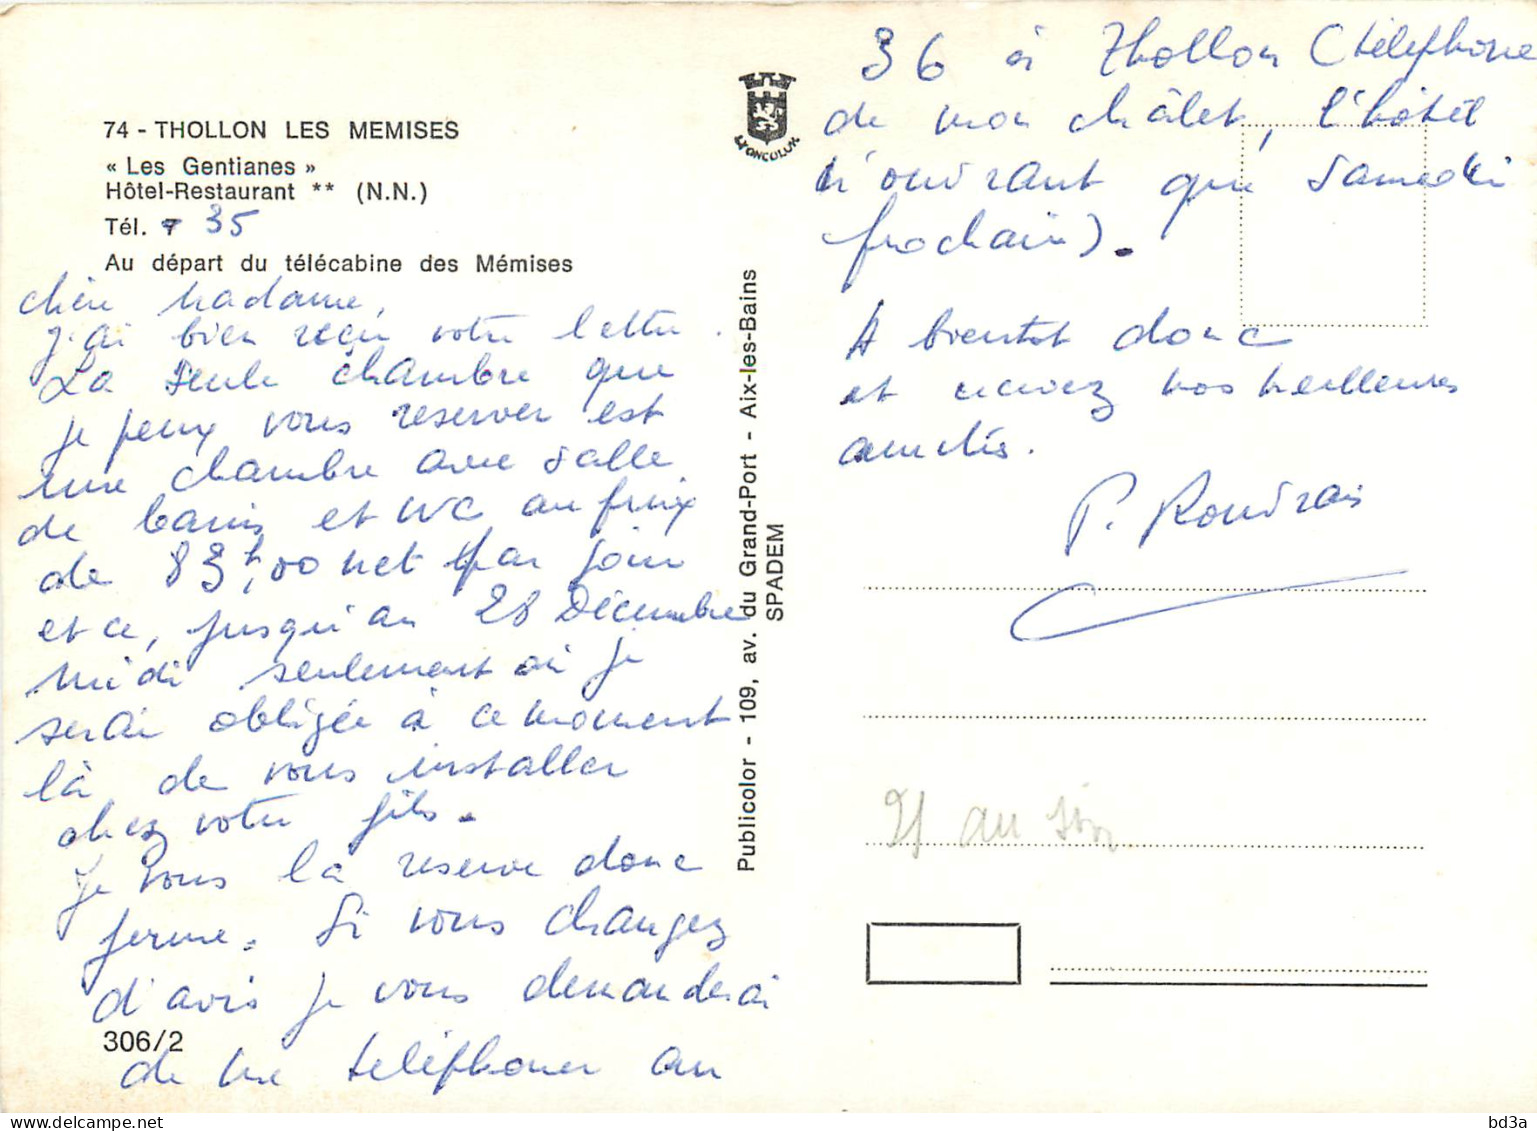 74 - THOLLON LES MEMISES
« Les Gentianes »
Hôtel-Restaurant ** (N.N.)
Tél. 35
Au départ du télécabine des Mémises
chère Madame,
J'ai bien reçu votre lettre.
La seule chambre que
je peux vous reserver est
une chambre avec salle
de bains et WC au prix
de 83f,00 net par jour
et ce, jusqu'au 28 Décembre
midi seulement où je
serai obligée à ce moment
là de vous installer
chez votre fils.
Je vous la reserve donc
ferme. Si vous changez
d'avis je vous demanderai
de me teléphoner au
306/2
LYONCOLOR
Publicolor - 109, av. du Grand-Port - Aix-les-Bains
SPADEM
36 à Thollon (téléphone
de mon châlet, l'hôtel
n'ouvrant que samedi
prochain).
A bientot donc
et recevez nos meilleures
amitiés.
P.
au
bd3a